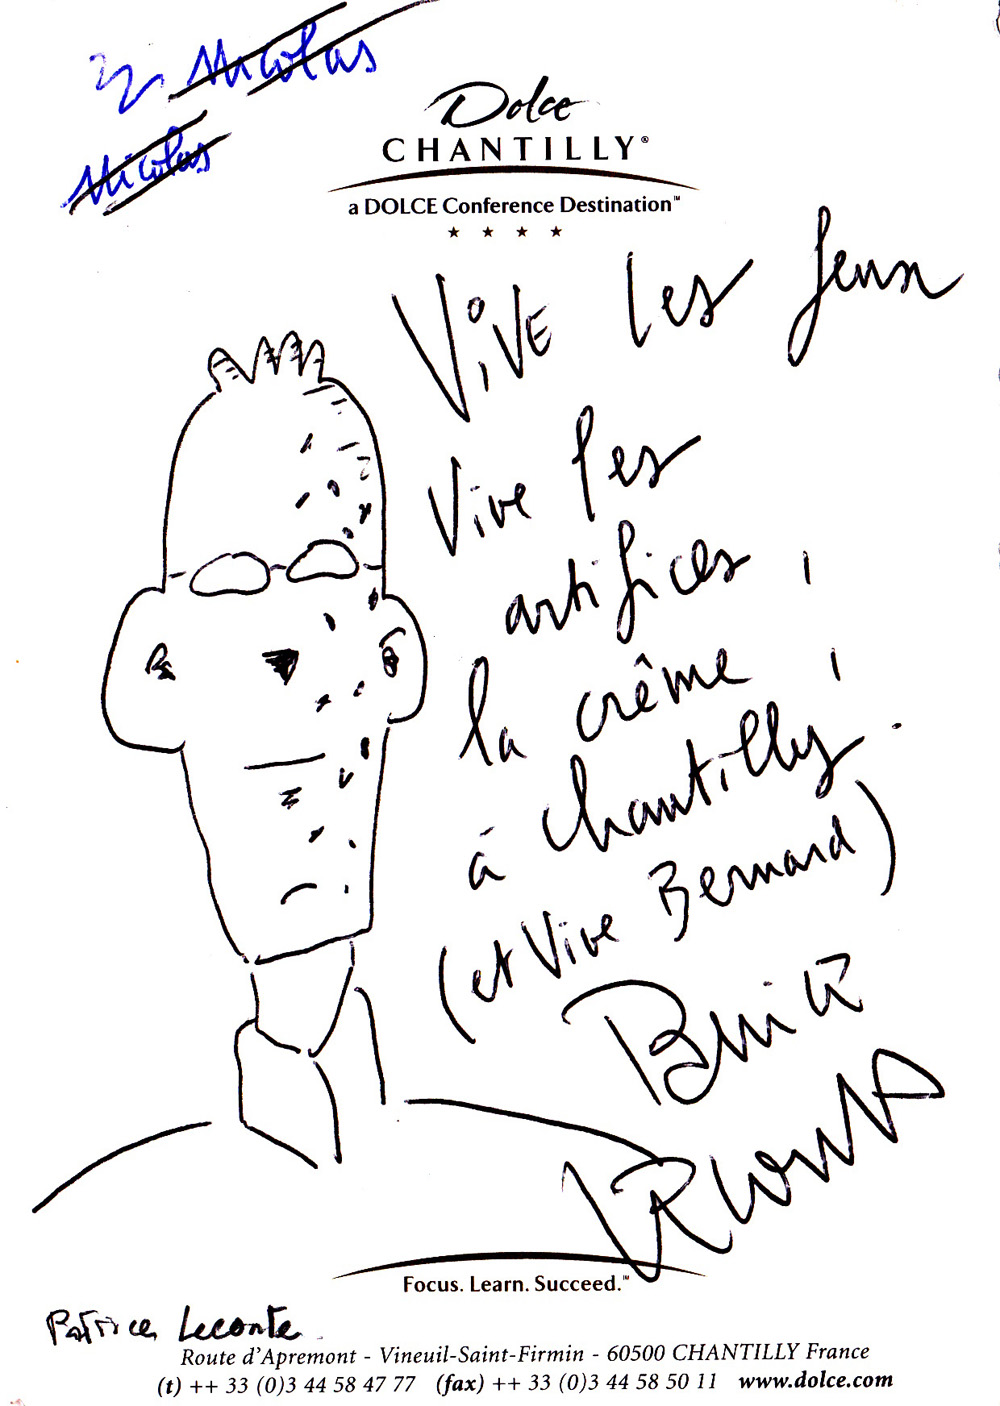 Nicolas
Nicolas
Dolce
CHANTILLY®
a DOLCE Conference Destination™
Vive les feux
Vive les
artifices,
la crême,
à Chantilly.
(et Vive Bernard)
Focus. Learn. Succeed.™
Patrice Leconte
Route d'Apremont - Vineuil-Saint-Firmin - 60500 CHANTILLY France
(t) ++ 33 (0)3 44 58 47 77 (fax) ++ 33 (0)3 44 58 50 11 www.dolce.com